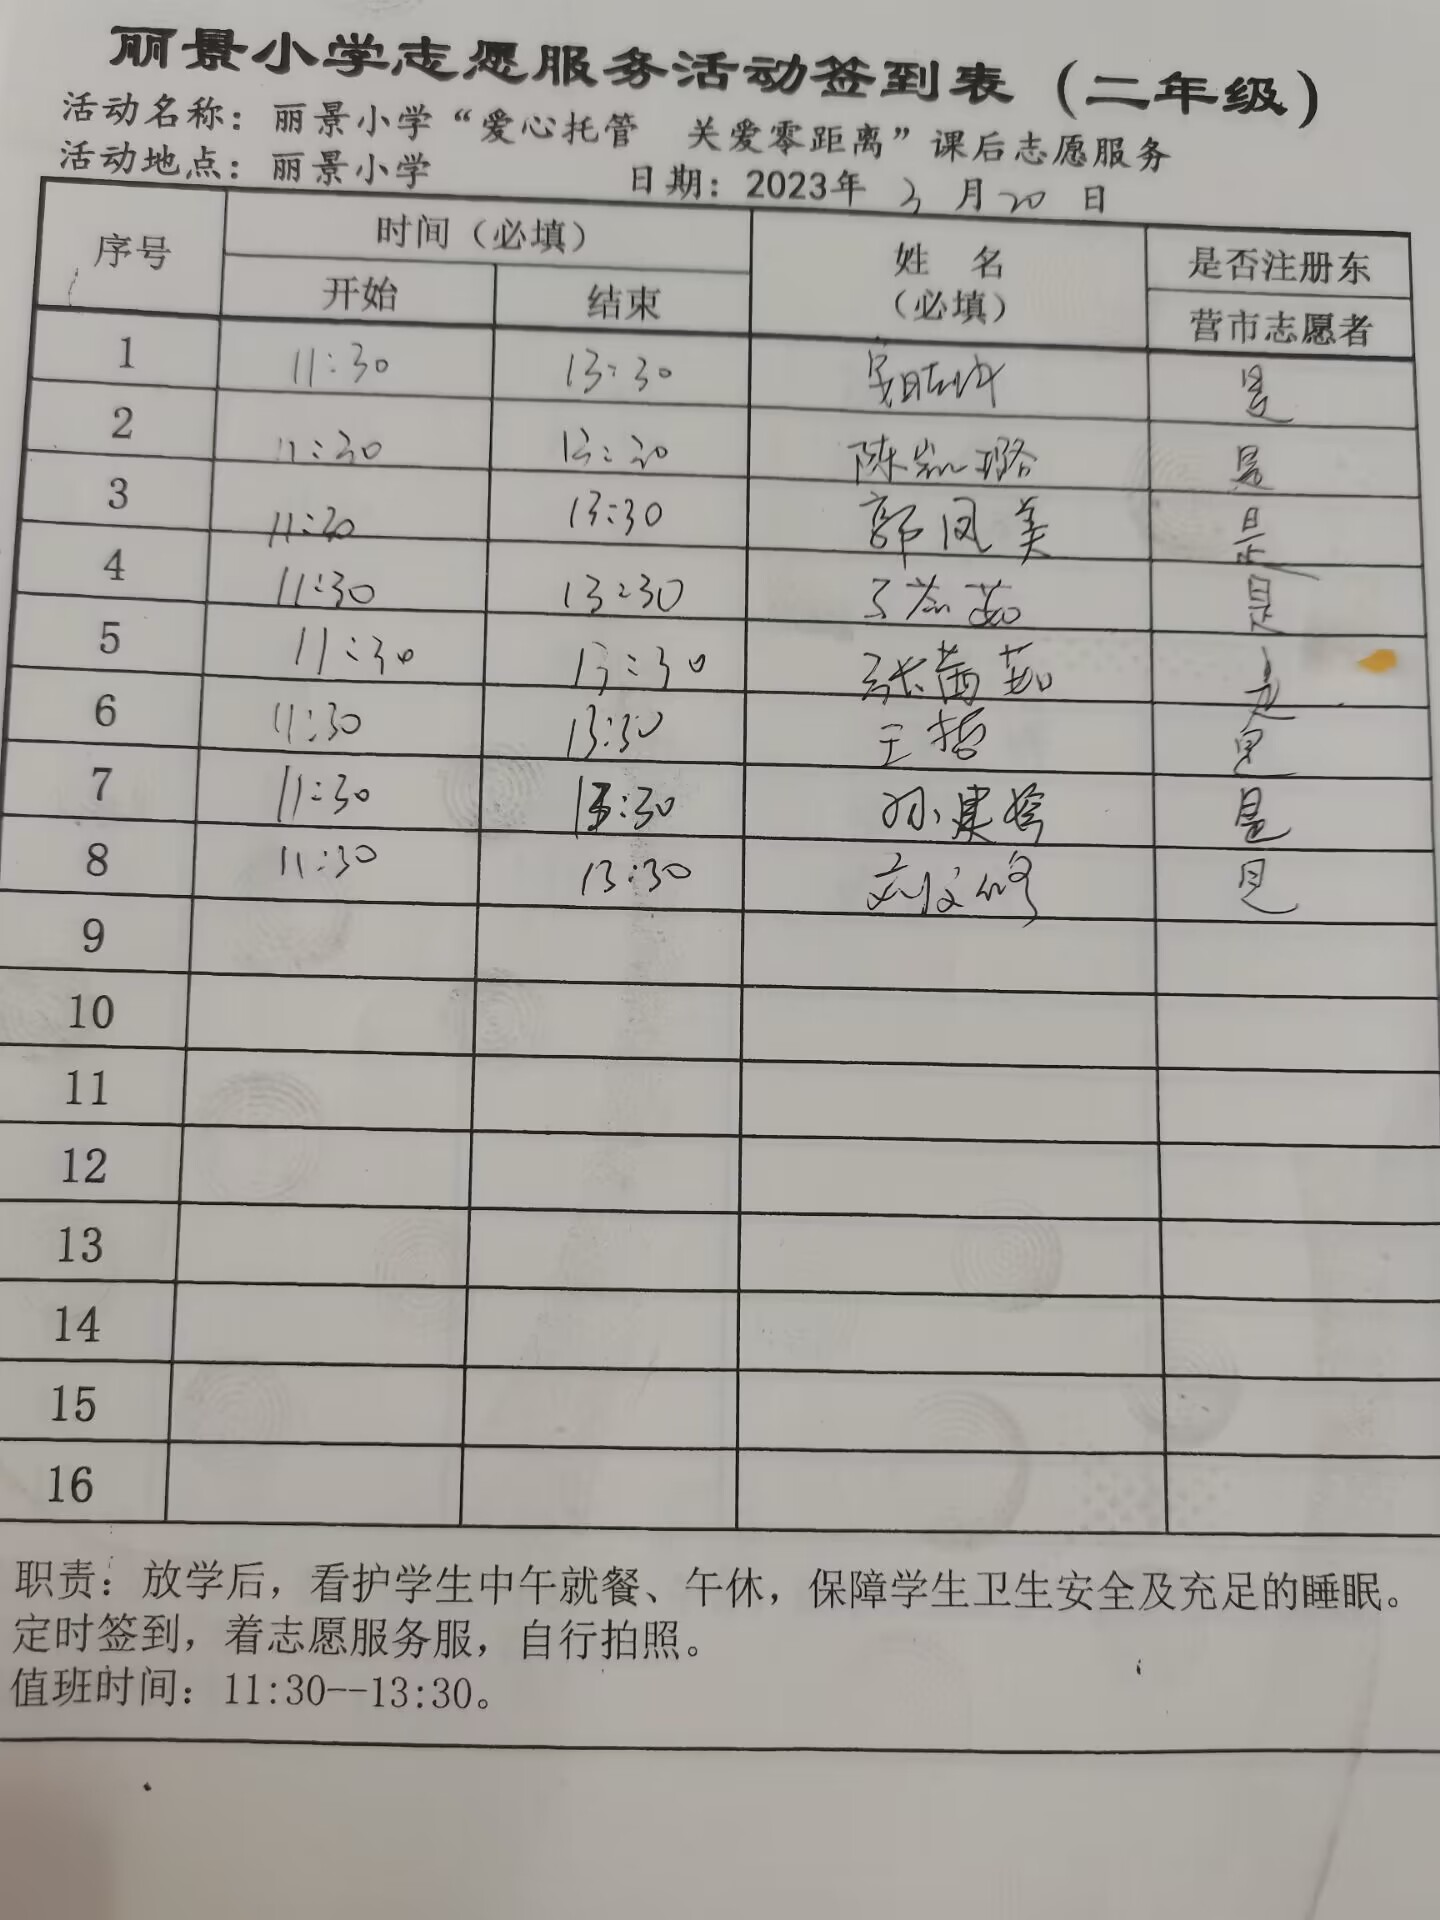 丽景小学志愿服务活动签到表（二年级）
活动名称：丽景小学“爱心托管 关爱零距离”课后志愿服务
活动地点：丽景小学 日期：2023年 3 月 20 日
序号 时间（必填） 姓 名 是否注册东
开始 结束 （必填） 营市志愿者
1 11:30 13:30 是
2 11:30 13:30 陈 璐 是
3 11:30 13:30 郭凤美 是
4 11:30 13:30 茹 是
5 11:30 13:30 张茜茹 是
6 11:30 13:30 王哲 是
7 11:30 13:30 孙建 是
8 11:30 13:30 刘文修 是
9
10
11
12
13
14
15
16
职责：放学后，看护学生中午就餐、午休，保障学生卫生安全及充足的睡眠。
定时签到，着志愿服务服，自行拍照。
值班时间：11:30--13:30。